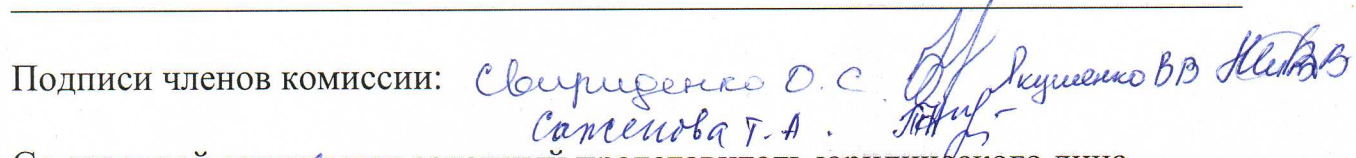 Подписи членов комиссии: Свириденко О. С. Якушенко В В
Саженова Т. А.
представитель юридического лица